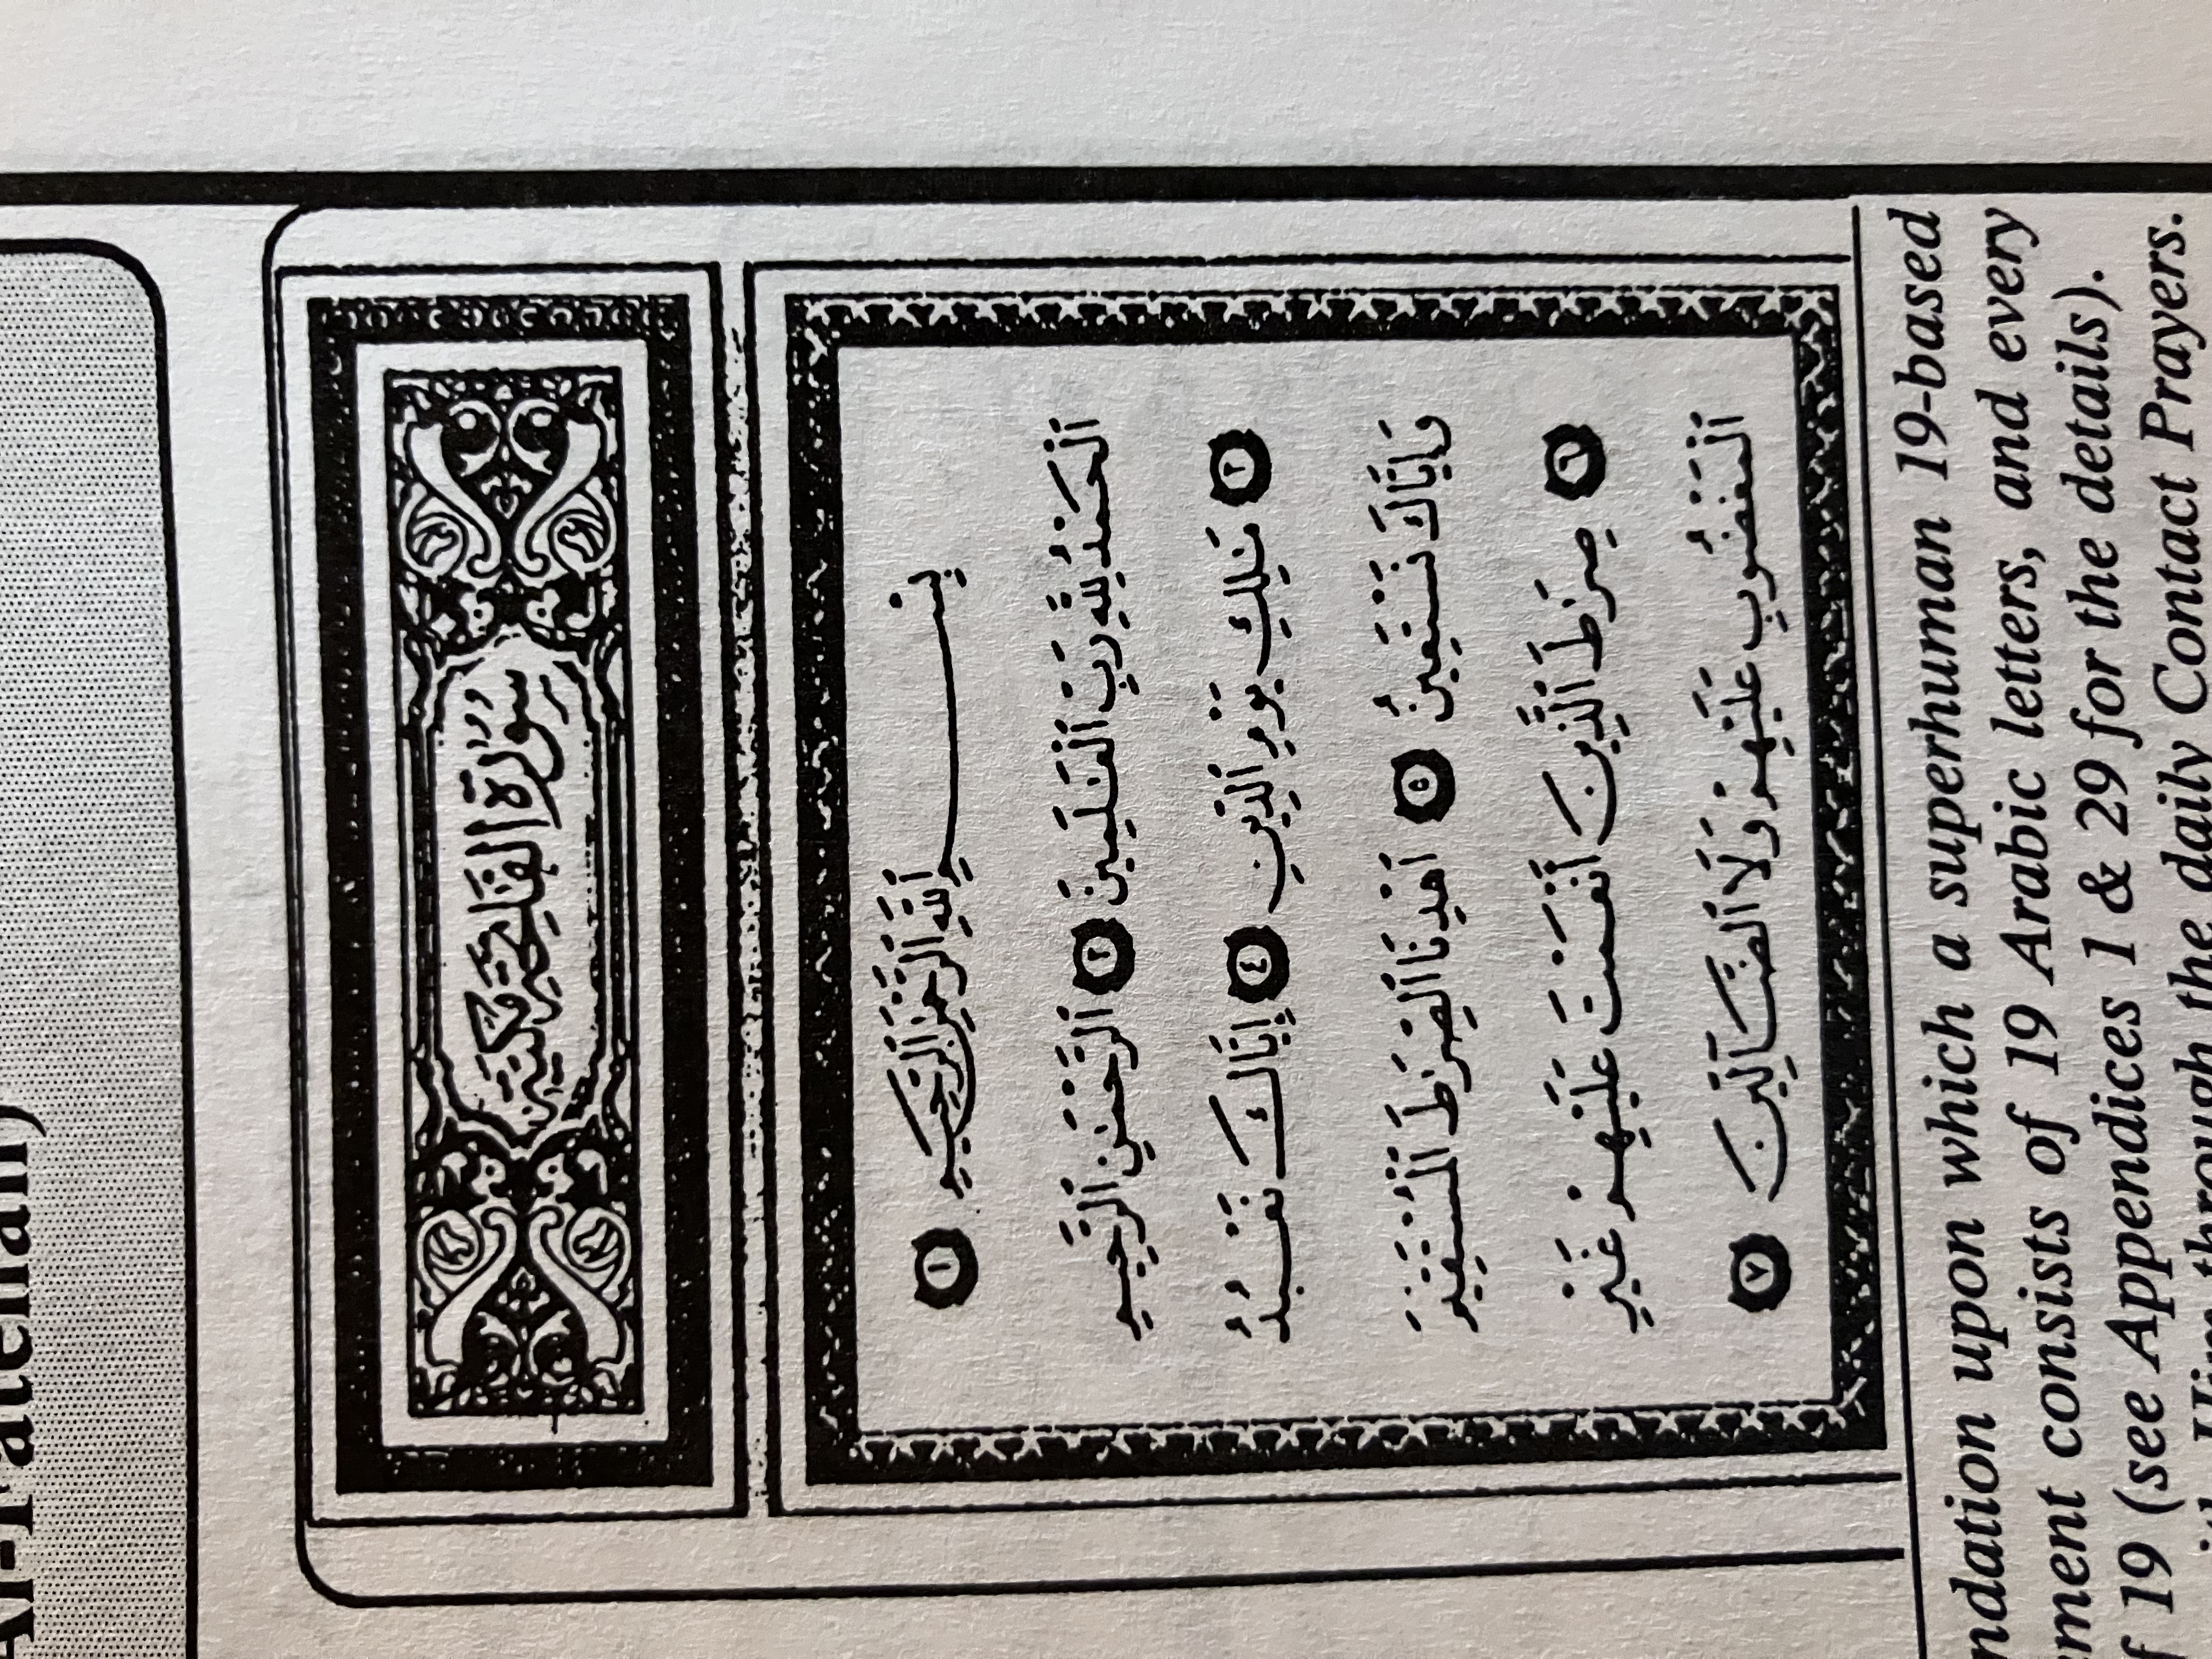 Al-Fatehah)
سُورَةُ الفَاتِحَةِ مَكِّيَّة
بِسْمِ ٱللَّهِ ٱلرَّحْمَٰنِ ٱلرَّحِيمِ ١
ٱلْحَمْدُ لِلَّهِ رَبِّ ٱلْعَٰلَمِينَ ٢ ٱلرَّحْمَٰنِ ٱلرَّحِيمِ
٣ مَٰلِكِ يَوْمِ ٱلدِّينِ ٤ إِيَّاكَ نَعْبُدُ
وَإِيَّاكَ نَسْتَعِينُ ٥ ٱهْدِنَا ٱلصِّرَٰطَ ٱلْمُسْتَقِيمَ
٦ صِرَٰطَ ٱلَّذِينَ أَنْعَمْتَ عَلَيْهِمْ غَيْرِ
ٱلْمَغْضُوبِ عَلَيْهِمْ وَلَا ٱلضَّآلِّينَ ٧
ndation upon which a superhuman 19-based
ment consists of 19 Arabic letters, and every
f 19 (see Appendices 1 & 29 for the details).
through the daily Contact Prayers.